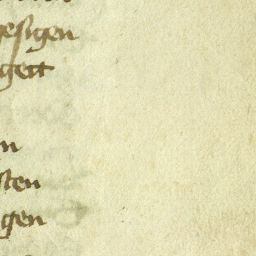 gesigen
geit
n
sten
gen